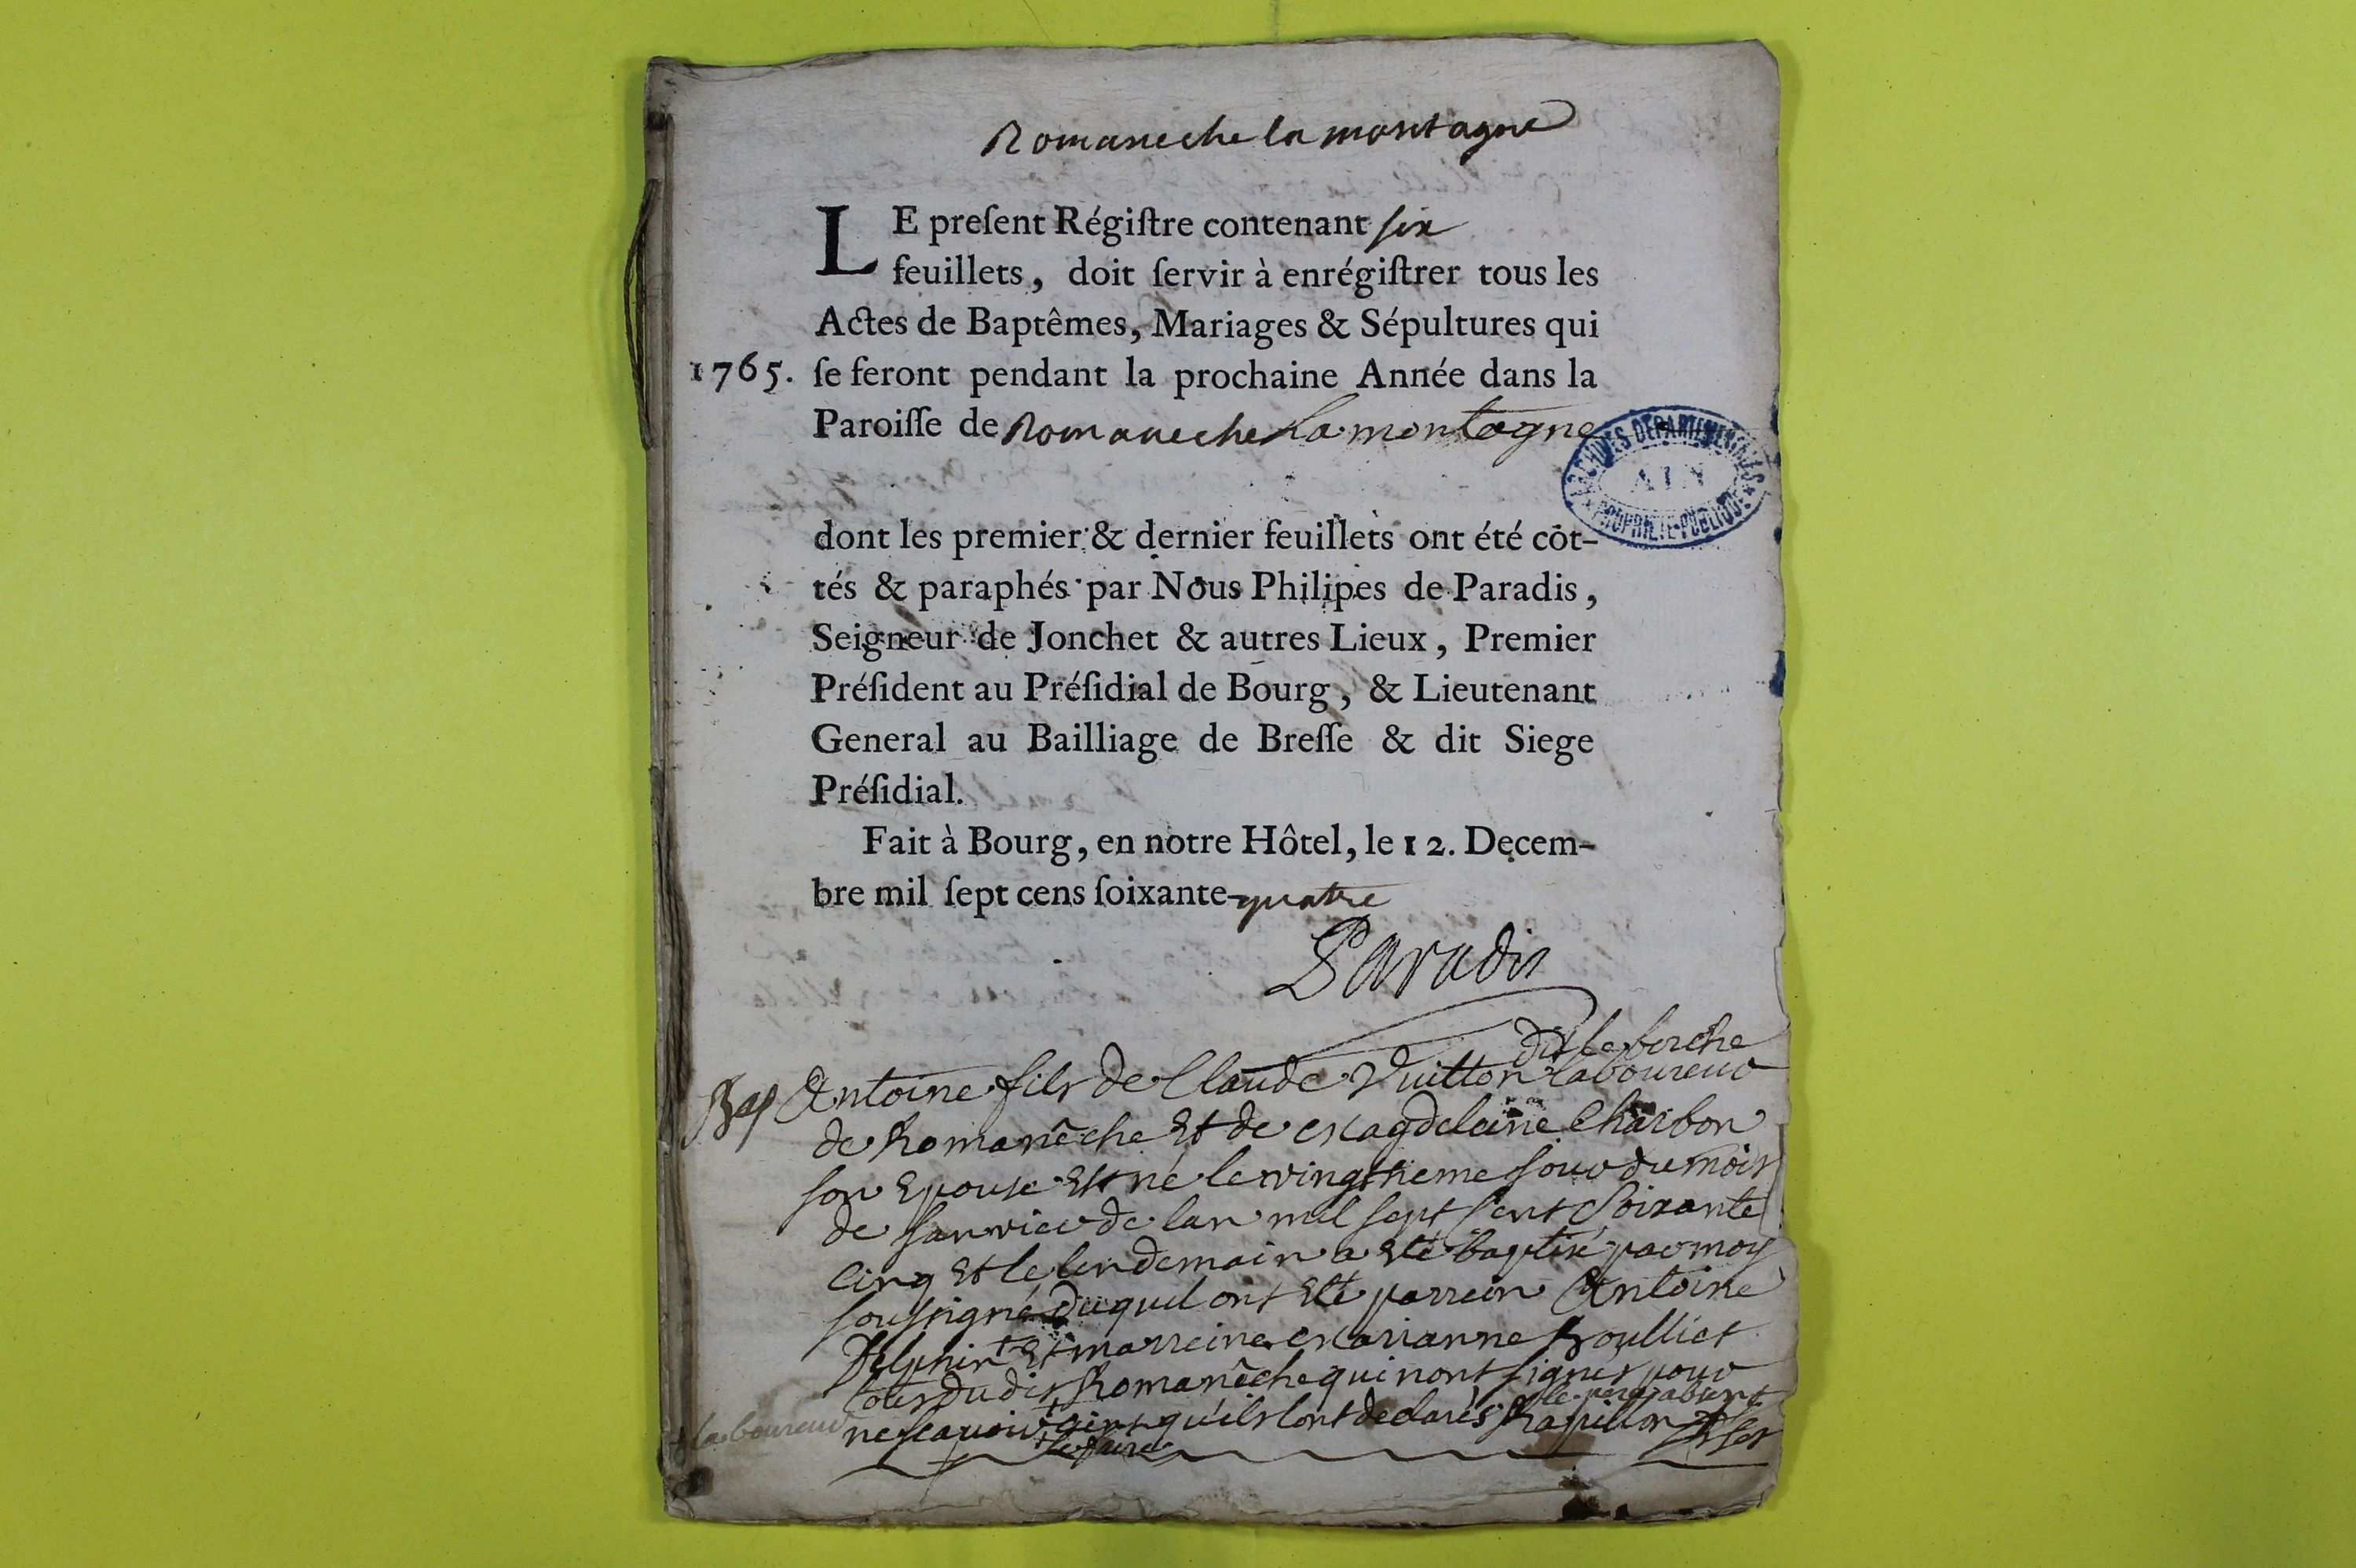 Romaneche la montagne
LE preſent Régiſtre contenant six
feuillets, doit ſervir à enrégiſtrer tous les
Actes de Baptêmes, Mariages & Sépultures qui
1765. ſe feront pendant la prochaine Année dans la
Paroiſſe de Romaneche La montagne
ARCHIVES DEPARTEMENTALES
AIN
PROPRIETE PUBLIQUE
dont les premier & dernier feuillets ont été côt-
tés & paraphés par Nous Philipes de Paradis,
Seigneur de Jonchet & autres Lieux, Premier
Préſident au Préſidial de Bourg, & Lieutenant
General au Bailliage de Breſſe & dit Siege
Préſidial.
Fait à Bourg, en notre Hôtel, le 12. Decem-
bre mil ſept cens ſoixante-quatre
Paradis
dit le
Bap Antoine fils de Claude Vuitton laboureur
de Romanêche Et de Magdelaine Charbon
son Epouse Est né le vingtieme jour du mois
de janvier de lan mil sept cent soixante
cinq Et le lendemain a eté baptisé par moy
soussigné duquel ont eté parrein Antoine
Et marreine Marianne
tous du dit Romanêche qui nont signés pour
le pere absent
+ laboureur ne scavoir ainsi qu'ils lont declarés
+ le faire